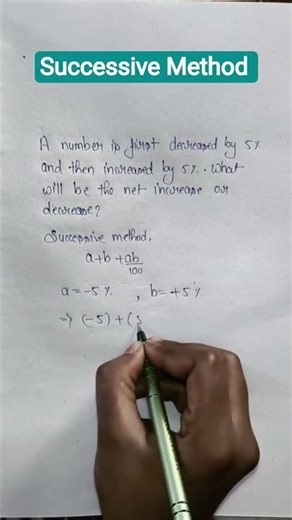 Successive Method
A number is first decreased by 5%
and then increased by 5%. What
will be the net increase or
decrease?
Successive method.
a+b+ab/100
a=-5%, b=+5%
⇒ (-5)+(5